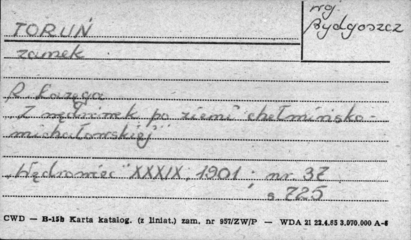 TORUŃ
woj.
Bydgoszcz
zamek
R. Łazęga
„Z wędrówek po ziemi chełmińsko-
michałowskiej"
„Wędrowiec" XXXIX, 1901, nr. 37
s 725
CWD — B-15b Karta katalog. (z liniat.) zam. nr 957/ZW/P — WDA 21 22.4.65 3.070.000 A-6